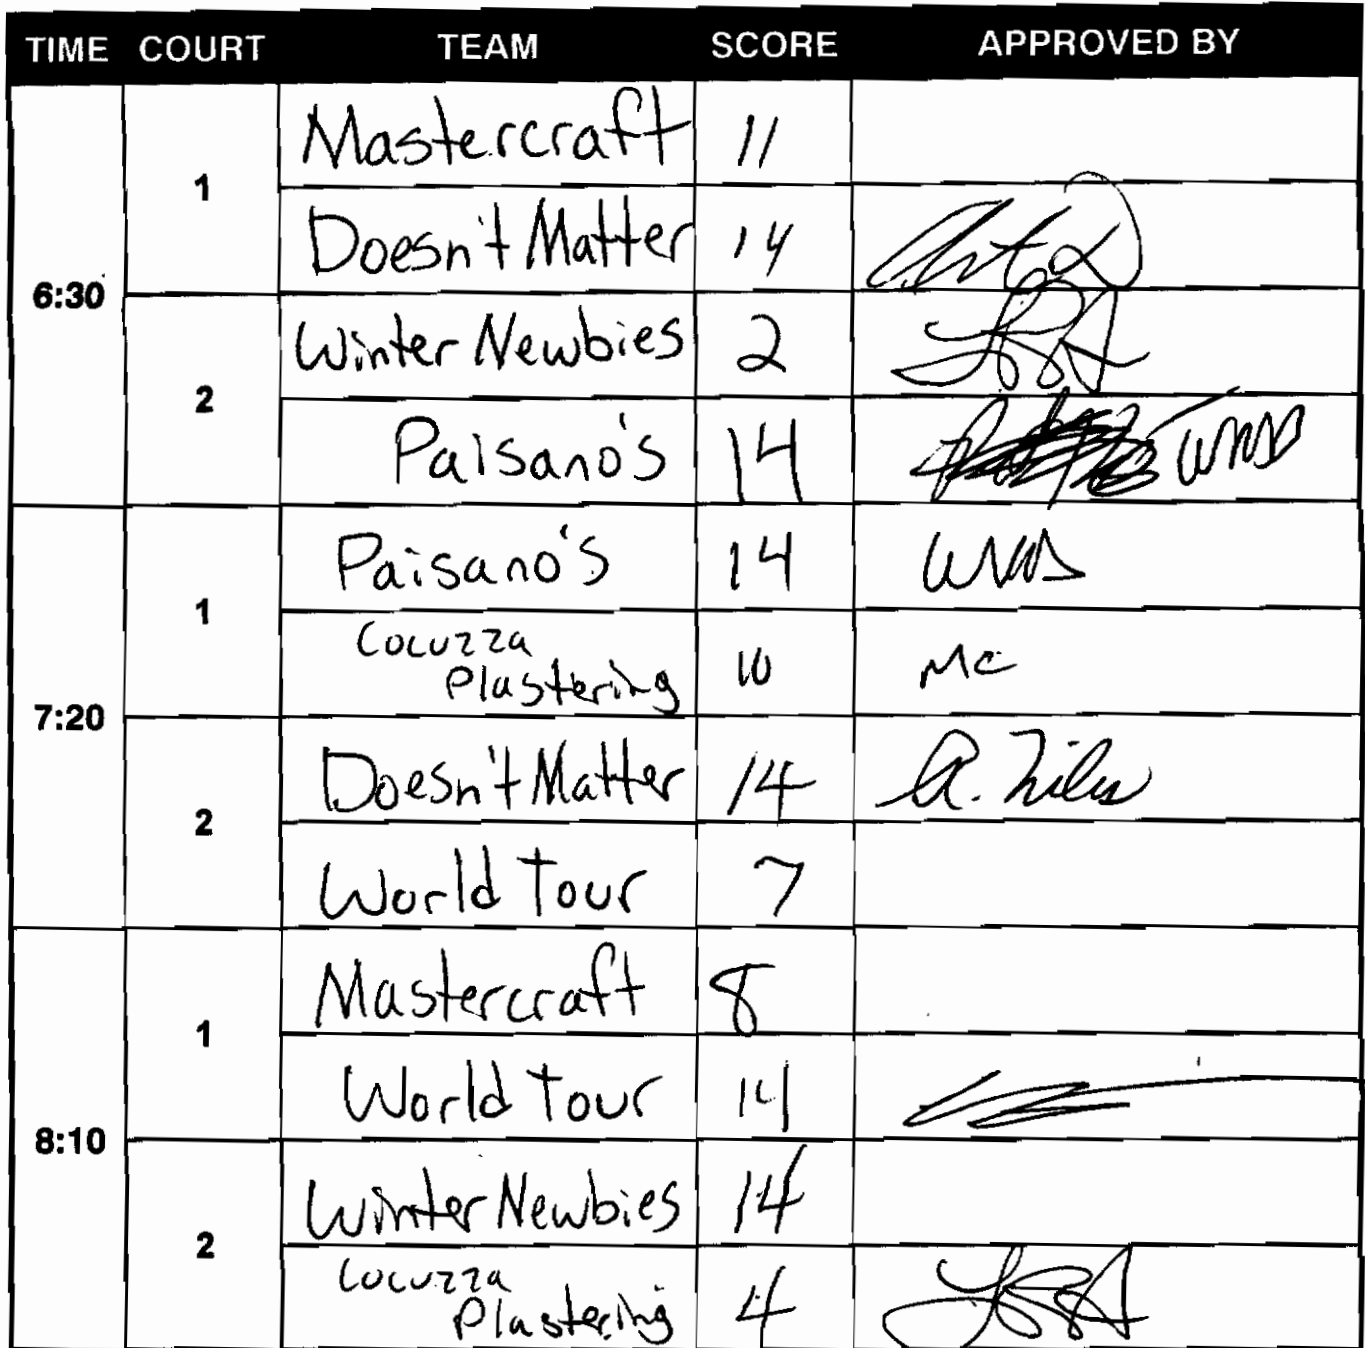 TIME COURT TEAM SCORE APPROVED BY
Mastercraft 11
1
Doesn't Matter 14
6:30
Winter Newbies 2
2
Paisano's 14
Paisano's 14
1
Cocuzza
Plastering 10 MC
7:20
Doesn't Matter 14 A. Niles
2
World Tour 7
Mastercraft 8
1
World Tour 14
8:10
Winter Newbies 14
2
Cocuzza
Plastering 4